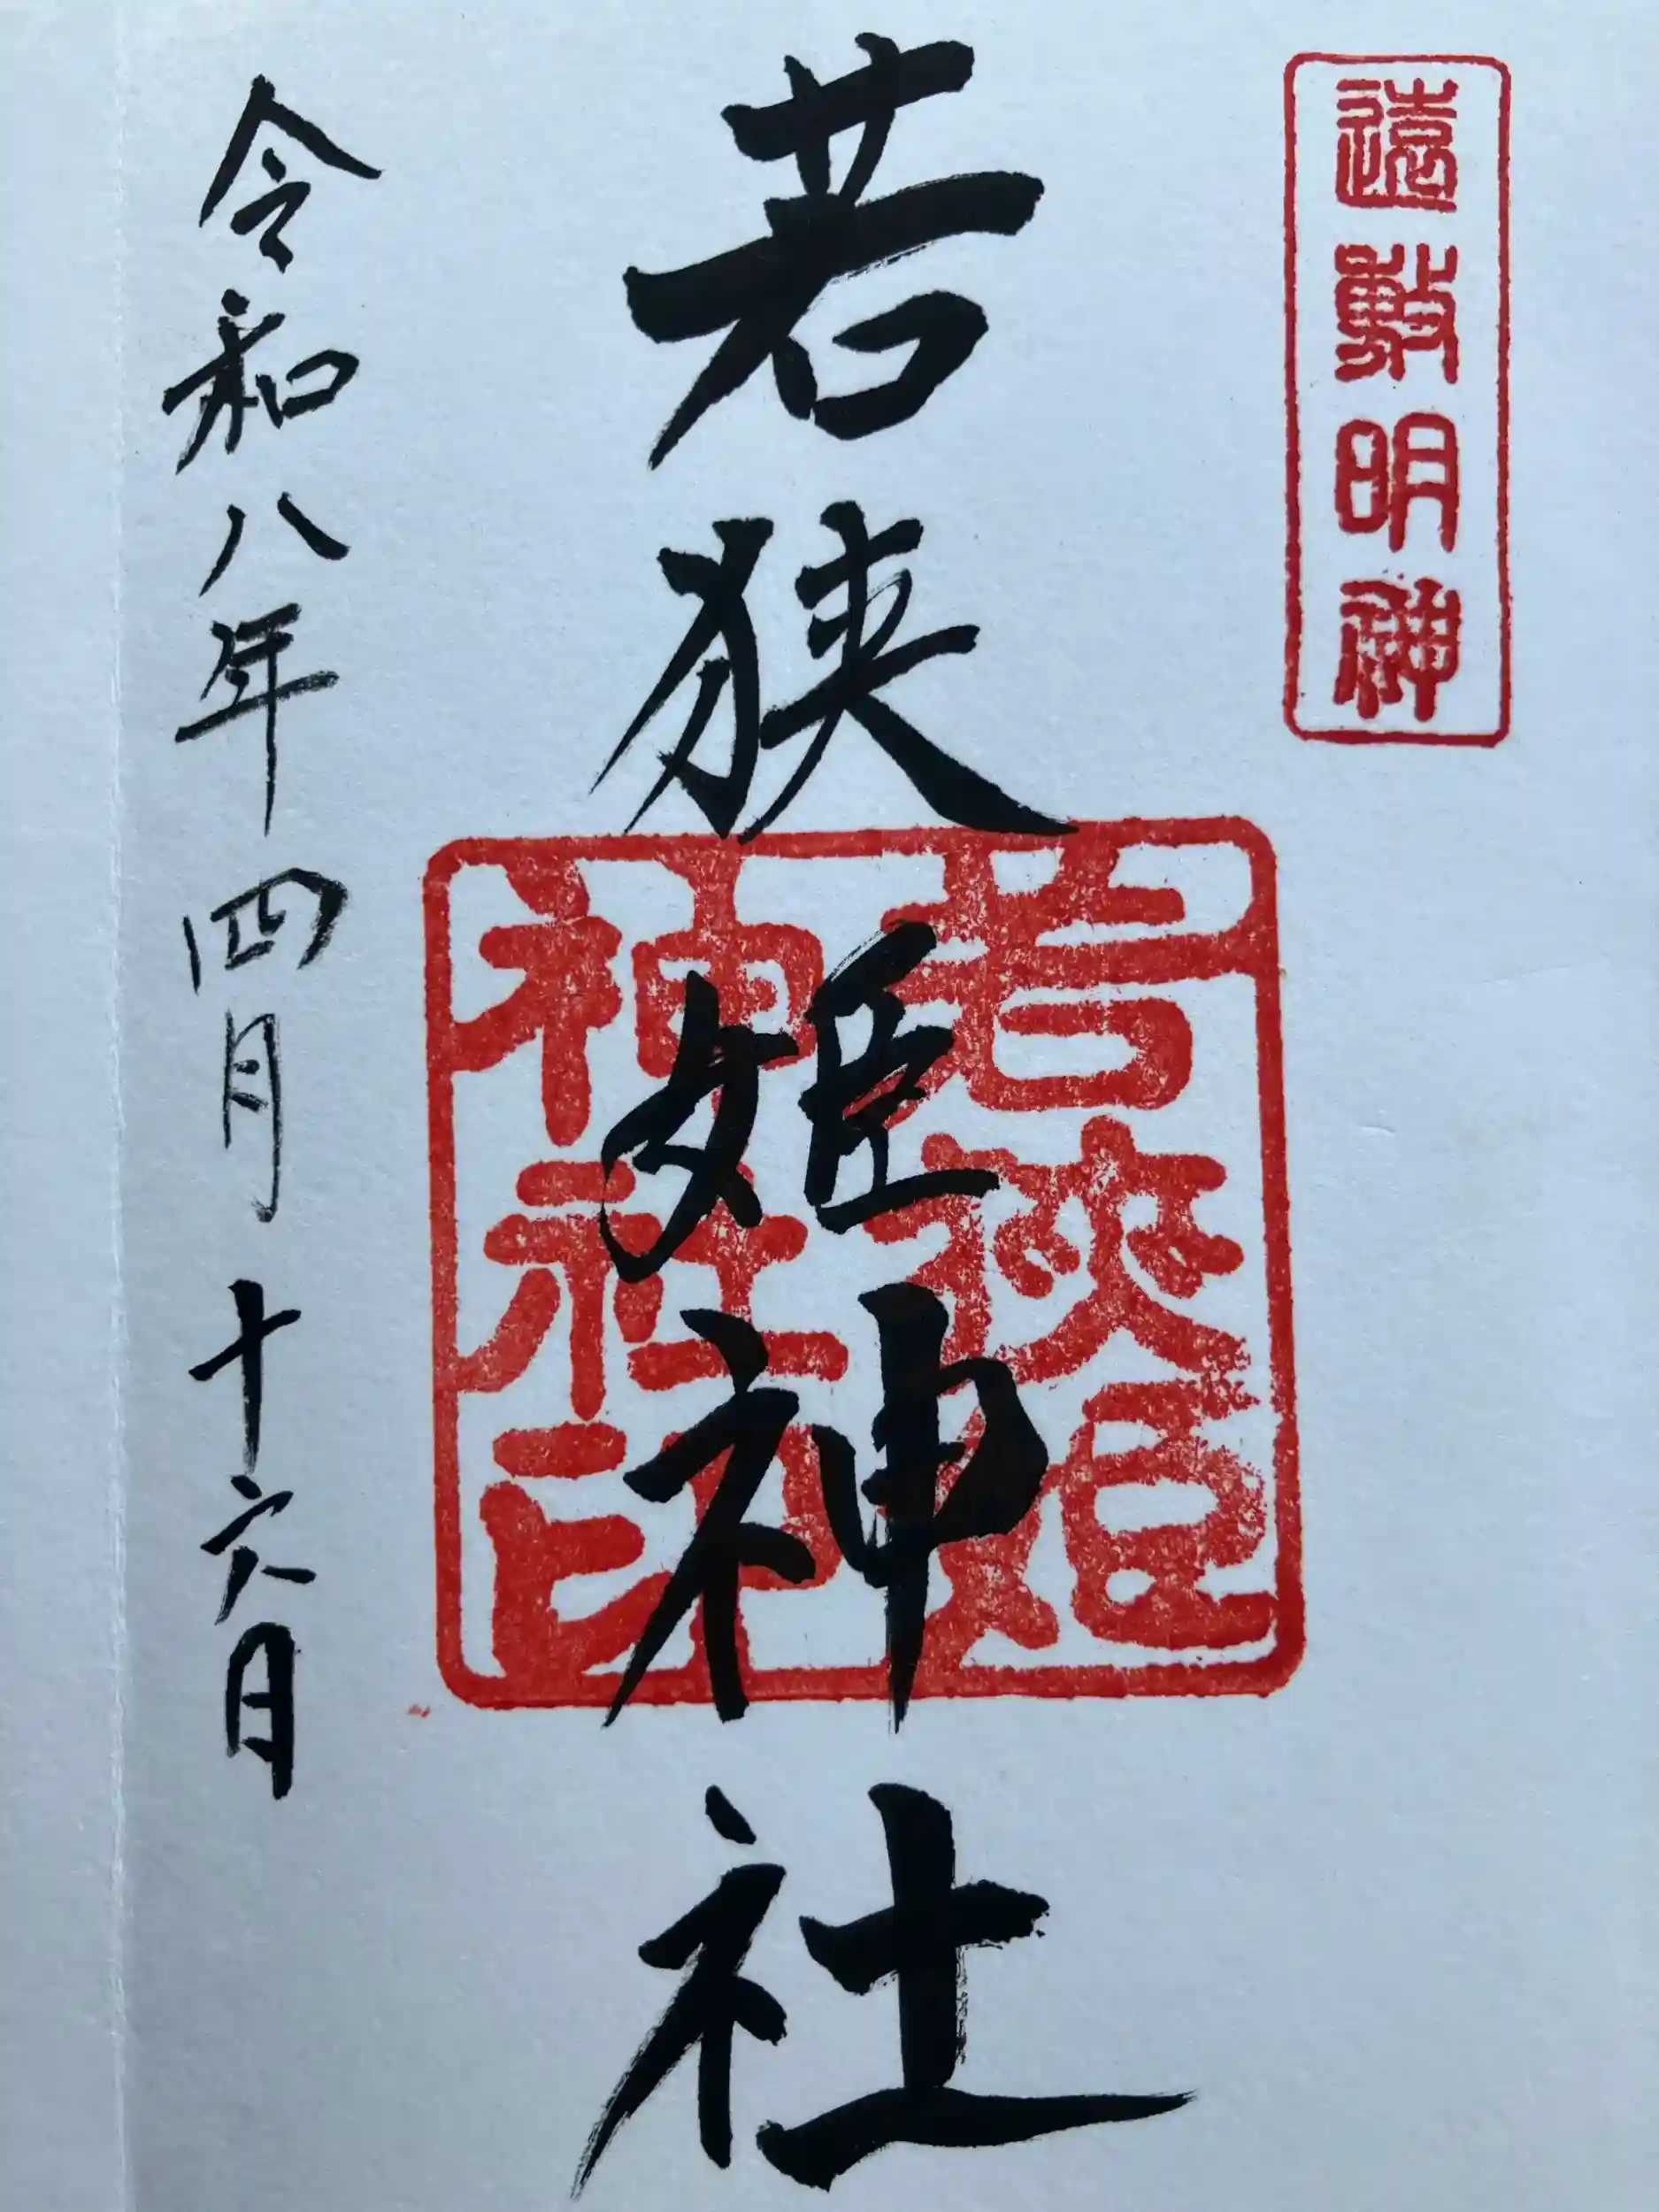 遠敷明神
若狹姫神社
若狹姫
神社印
令和八年四月十六日